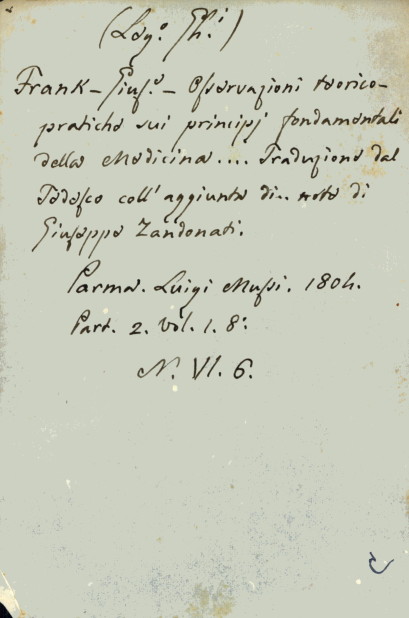 Frank - Gius.e - Osservazioni teorico-
pratiche sui principj fondamentali
della Medicina.... Traduzione dal
Tedesco coll'aggiunta di.. note di
Giuseppe Zandonati.
Parma. Luigi Mussi. 1804.
Part. 2. vol. 1. 8.
N. VI. 6.